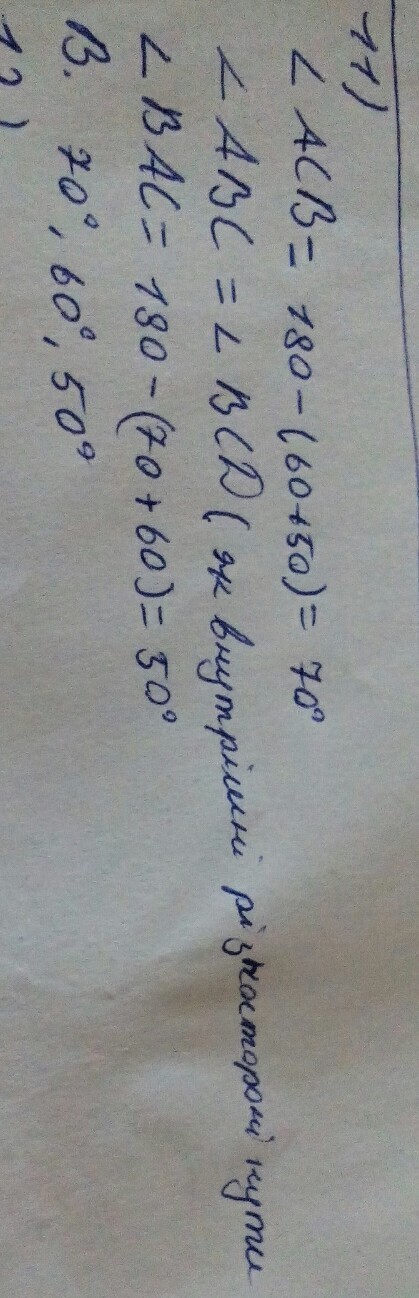 11)
∠ ACB = 180 - (60+50) = 70°
∠ ABC = ∠ BCD ( як внутрішні різносторонні кути
∠ BAC = 180 - (70 + 60) = 50°
В. 70°, 60°, 50°
12)